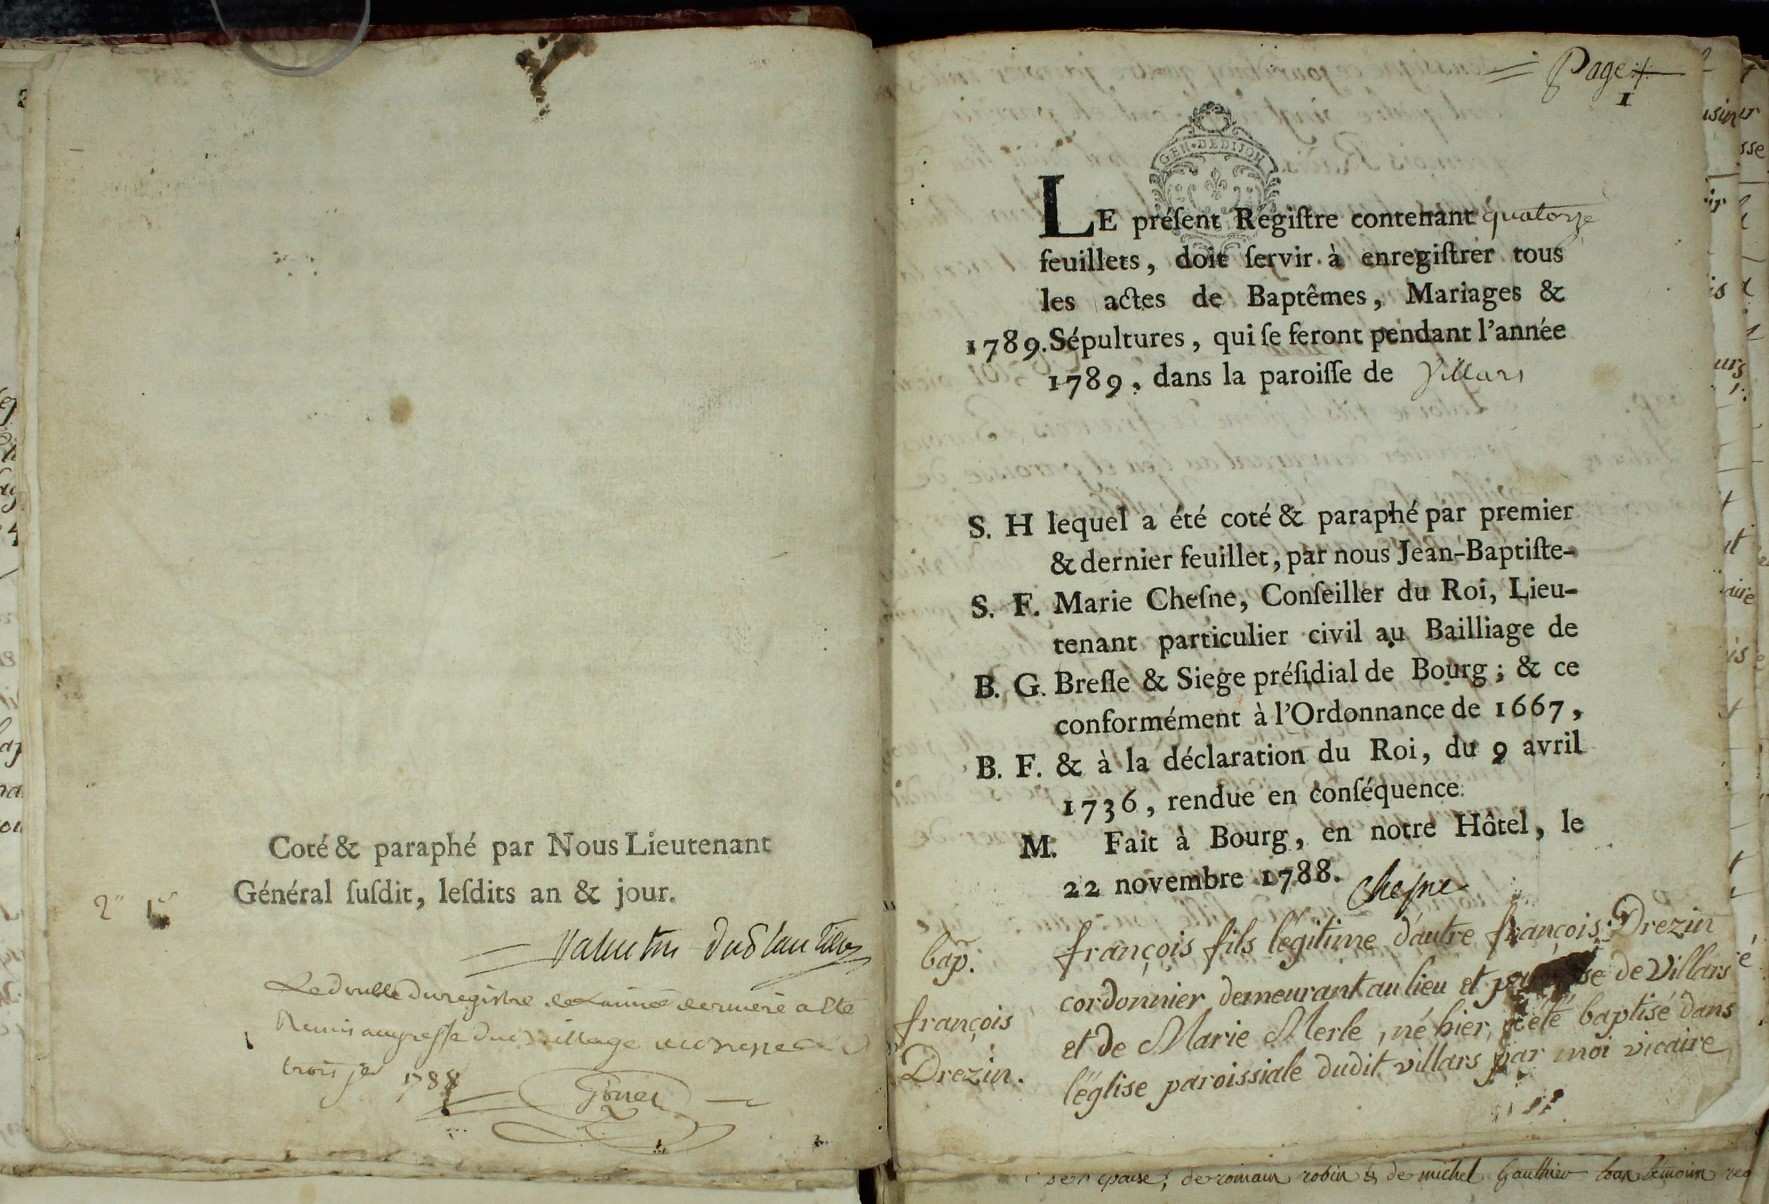 Coté & paraphé par Nous Lieutenant
Général ſuſdit, leſdits an & jour.
2
Le double du registre de l'année derniere a été
Remis au greffe du
trois 1788
Page
1
GEN·DEDIJON
LE préſent Regiſtre contenant quatorze
feuillets, doit ſervir à enregiſtrer tous
les actes de Baptêmes, Mariages &
1789. Sépultures, qui ſe feront pendant l'année
1789, dans la paroiſſe de Villars
S. H lequel a été coté & paraphé par premier
& dernier feuillet, par nous Jean-Baptiſte-
S. F. Marie Cheſne, Conſeiller du Roi, Lieu-
tenant particulier civil au Bailliage de
B. G. Breſſe & Siege préſidial de Bourg; & ce
conformément à l'Ordonnance de 1667,
B. F. & à la déclaration du Roi, du 9 avril
1736, rendue en conſéquence.
M. Fait à Bourg, en notre Hôtel, le
22 novembre 1788.
Chesne
bap.
françois
Drezin.
françois fils légitime d'autre françois Drezin
cordonnier demeurant au lieu et de Villars
et de Marie Merle, né hier, a été baptisé dans
l'église paroissiale dudit villars par moi vicaire
épouse, de romain robin & de michel Gauthier